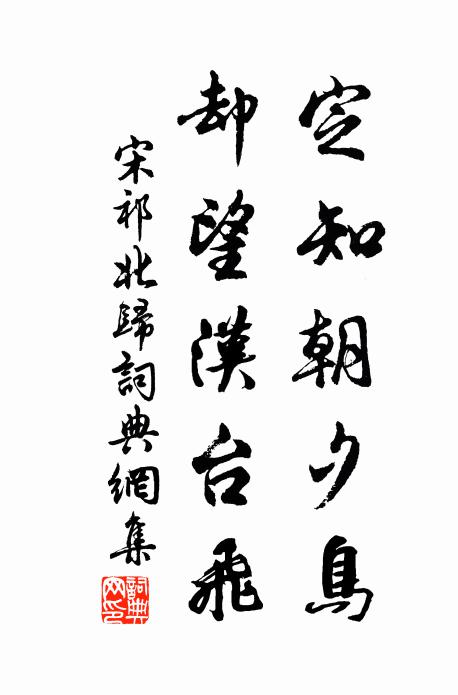 定知朝夕鳥
却望漢台飛
宋祁北歸詞典網集
詞典网印